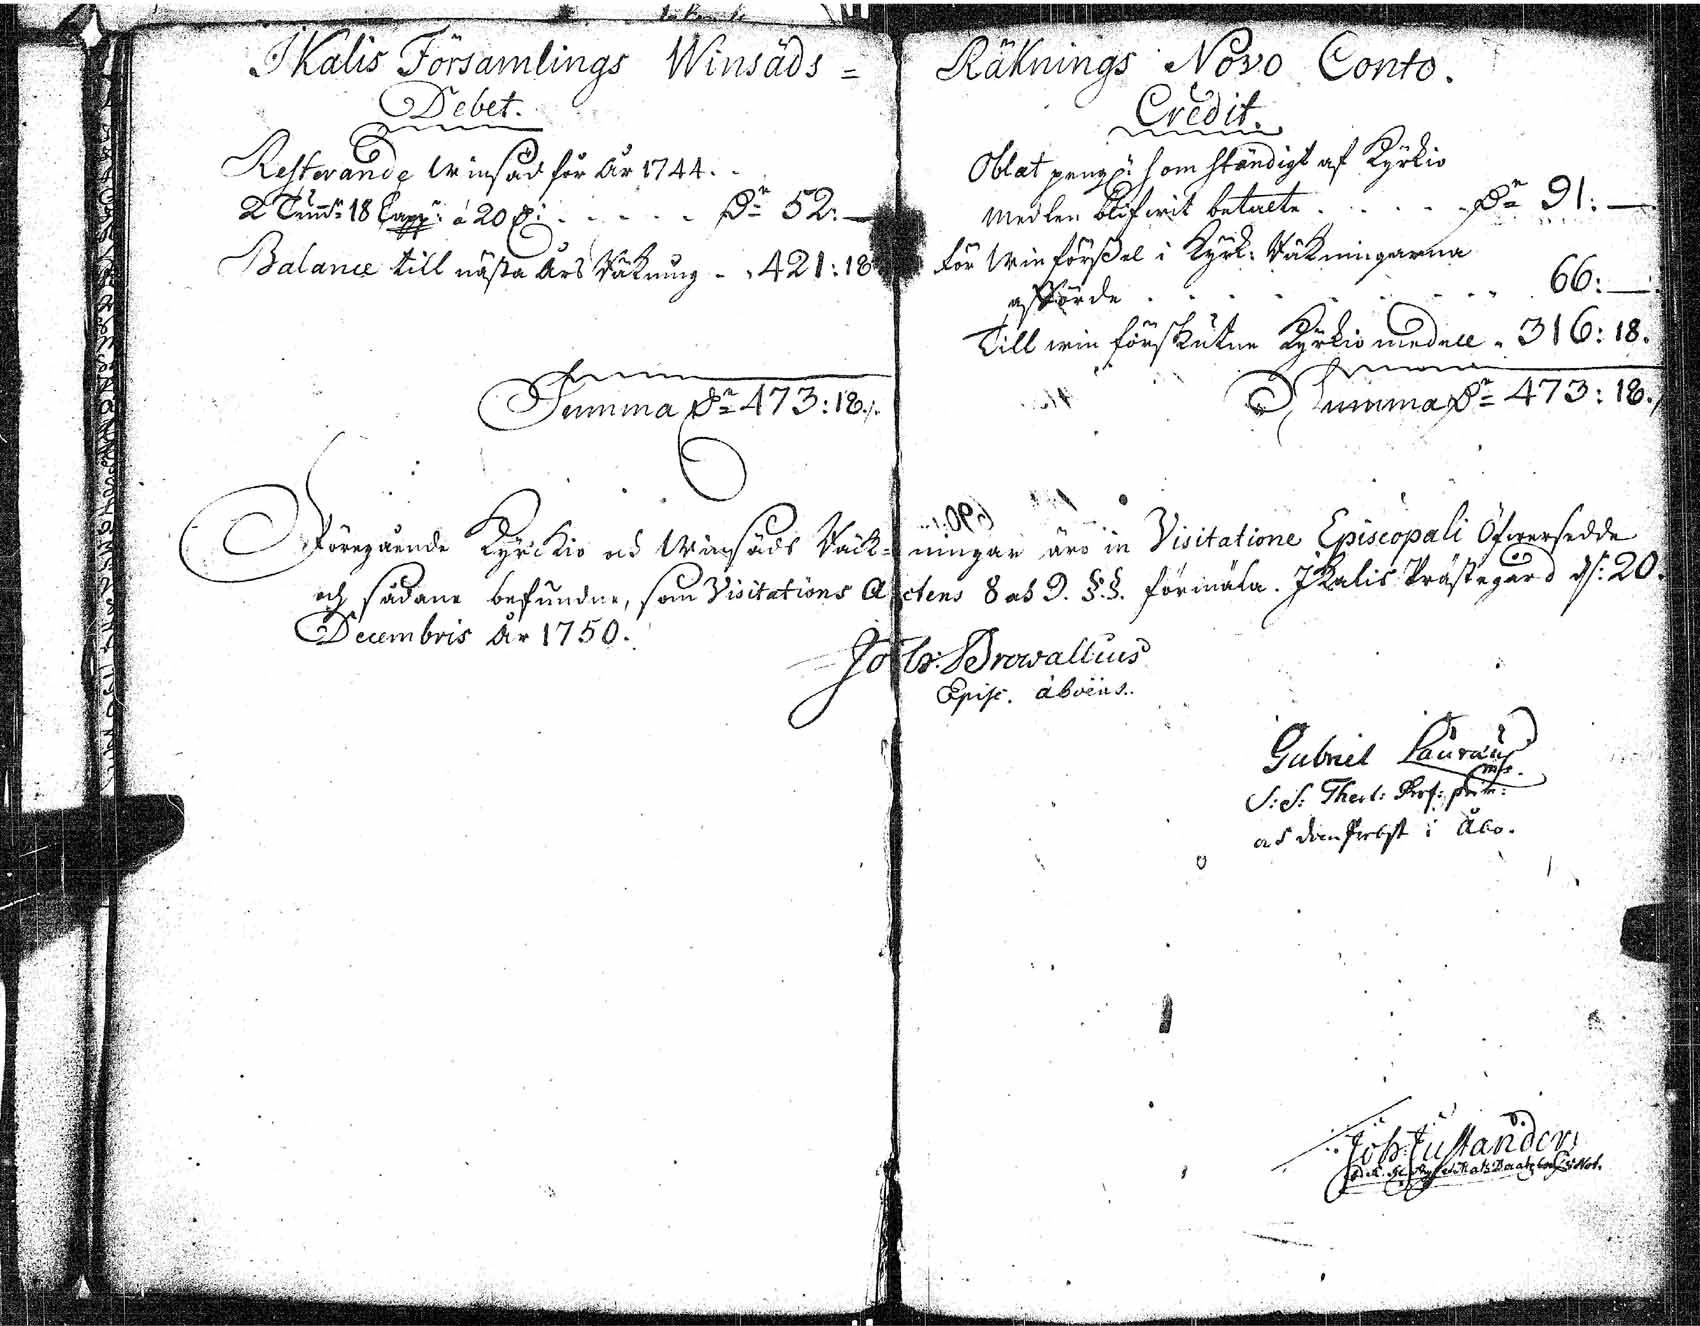 IKalis Församlings Winsäds =
Debet.
Resterande Winsäd för År 1744.
2 Tunn: 18 Capp: á 20 . . . . . Dr 52: —
Balance till nästa Års Räkning - . 421:18
Summa Dr 473:18./.
Räknings Novo Conto.
Credit.
Oblat peng: som ständigt af Kyrkio
medlen blifwit betalte . . . . . Dr 91: —
För Winförsel i Kyrk: Räkningarna
afförde . . . . . . . . 66: —
Till win förskutne Kyrkio medell . 316:18.
Summa Dr 473:18./.
Föregående Kyrckio och Winsäds Räck=ningar äro in Visitatione Episcopali Öfwersedde
och sådane befundne, som Visitations Actens 8 och 9. §.§. förmäla. IKalis Prästegård d: 20.
Decembris År 1750.
Joh: Browallius
Episc. Aboëns.
Gabriel Lauræus
S:S: Theol: Prof: prim:
och domProbst i Åbo.
Joh: Justander